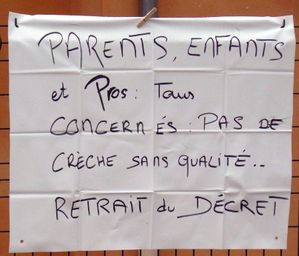 PARENTS, ENFANTS
et Pros : Tous
CONCERNÉS : PAS DE
CRÈCHE SANS QUALITÉ..
RETRAIT du DÉCRET